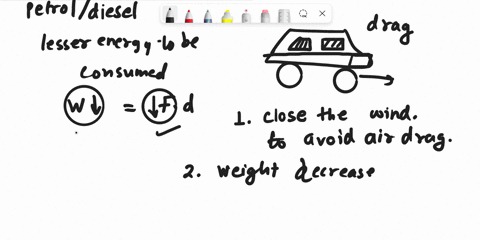 petrol/diesel
lesser energy to be
consumed
W↓ = ↓f d
drag
1. close the wind.
to avoid air drag.
2. weight decrease